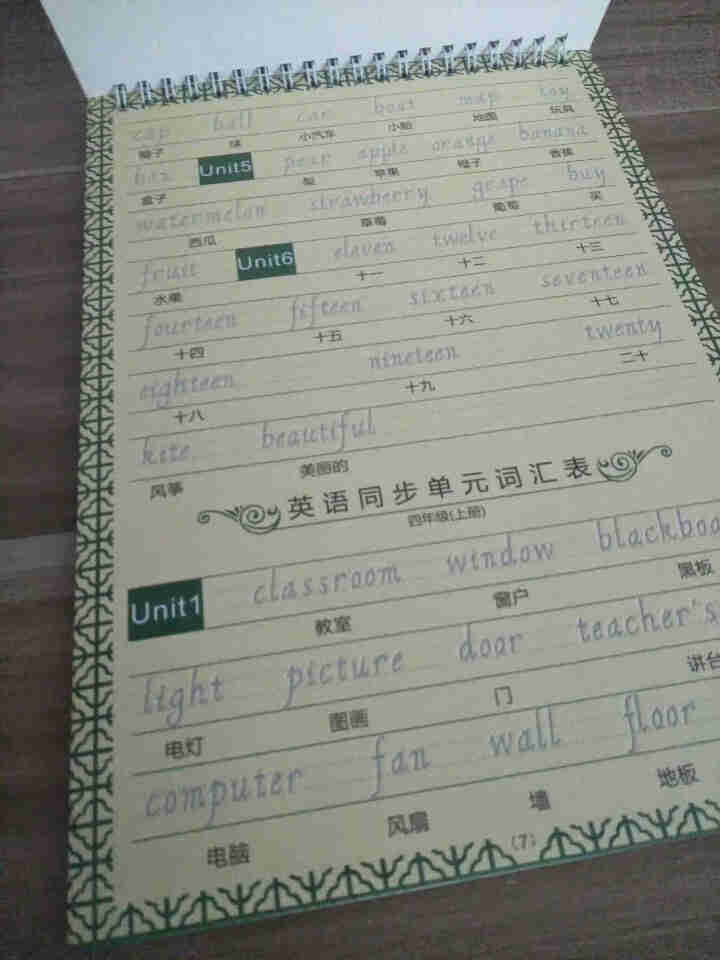 cap ball car boat map toy
帽子 球 小汽车 小船 地图 玩具
box Unit5 pear apple orange banana
盒子 梨 苹果 橙子 香蕉
watermelon strawberry grape buy
西瓜 草莓 葡萄 买
fruit Unit6 eleven twelve thirteen
水果 十一 十二 十三
fourteen fifteen sixteen seventeen
十四 十五 十六 十七
eighteen nineteen twenty
十八 十九 二十
kite beautiful
风筝 美丽的
英语同步单元词汇表
四年级(上册)
Unit1 classroom window blackboa
教室 窗户 黑板
light picture door teacher's
电灯 图画 门 讲台
computer fan wall floor
电脑 风扇 墙 地板
(7)